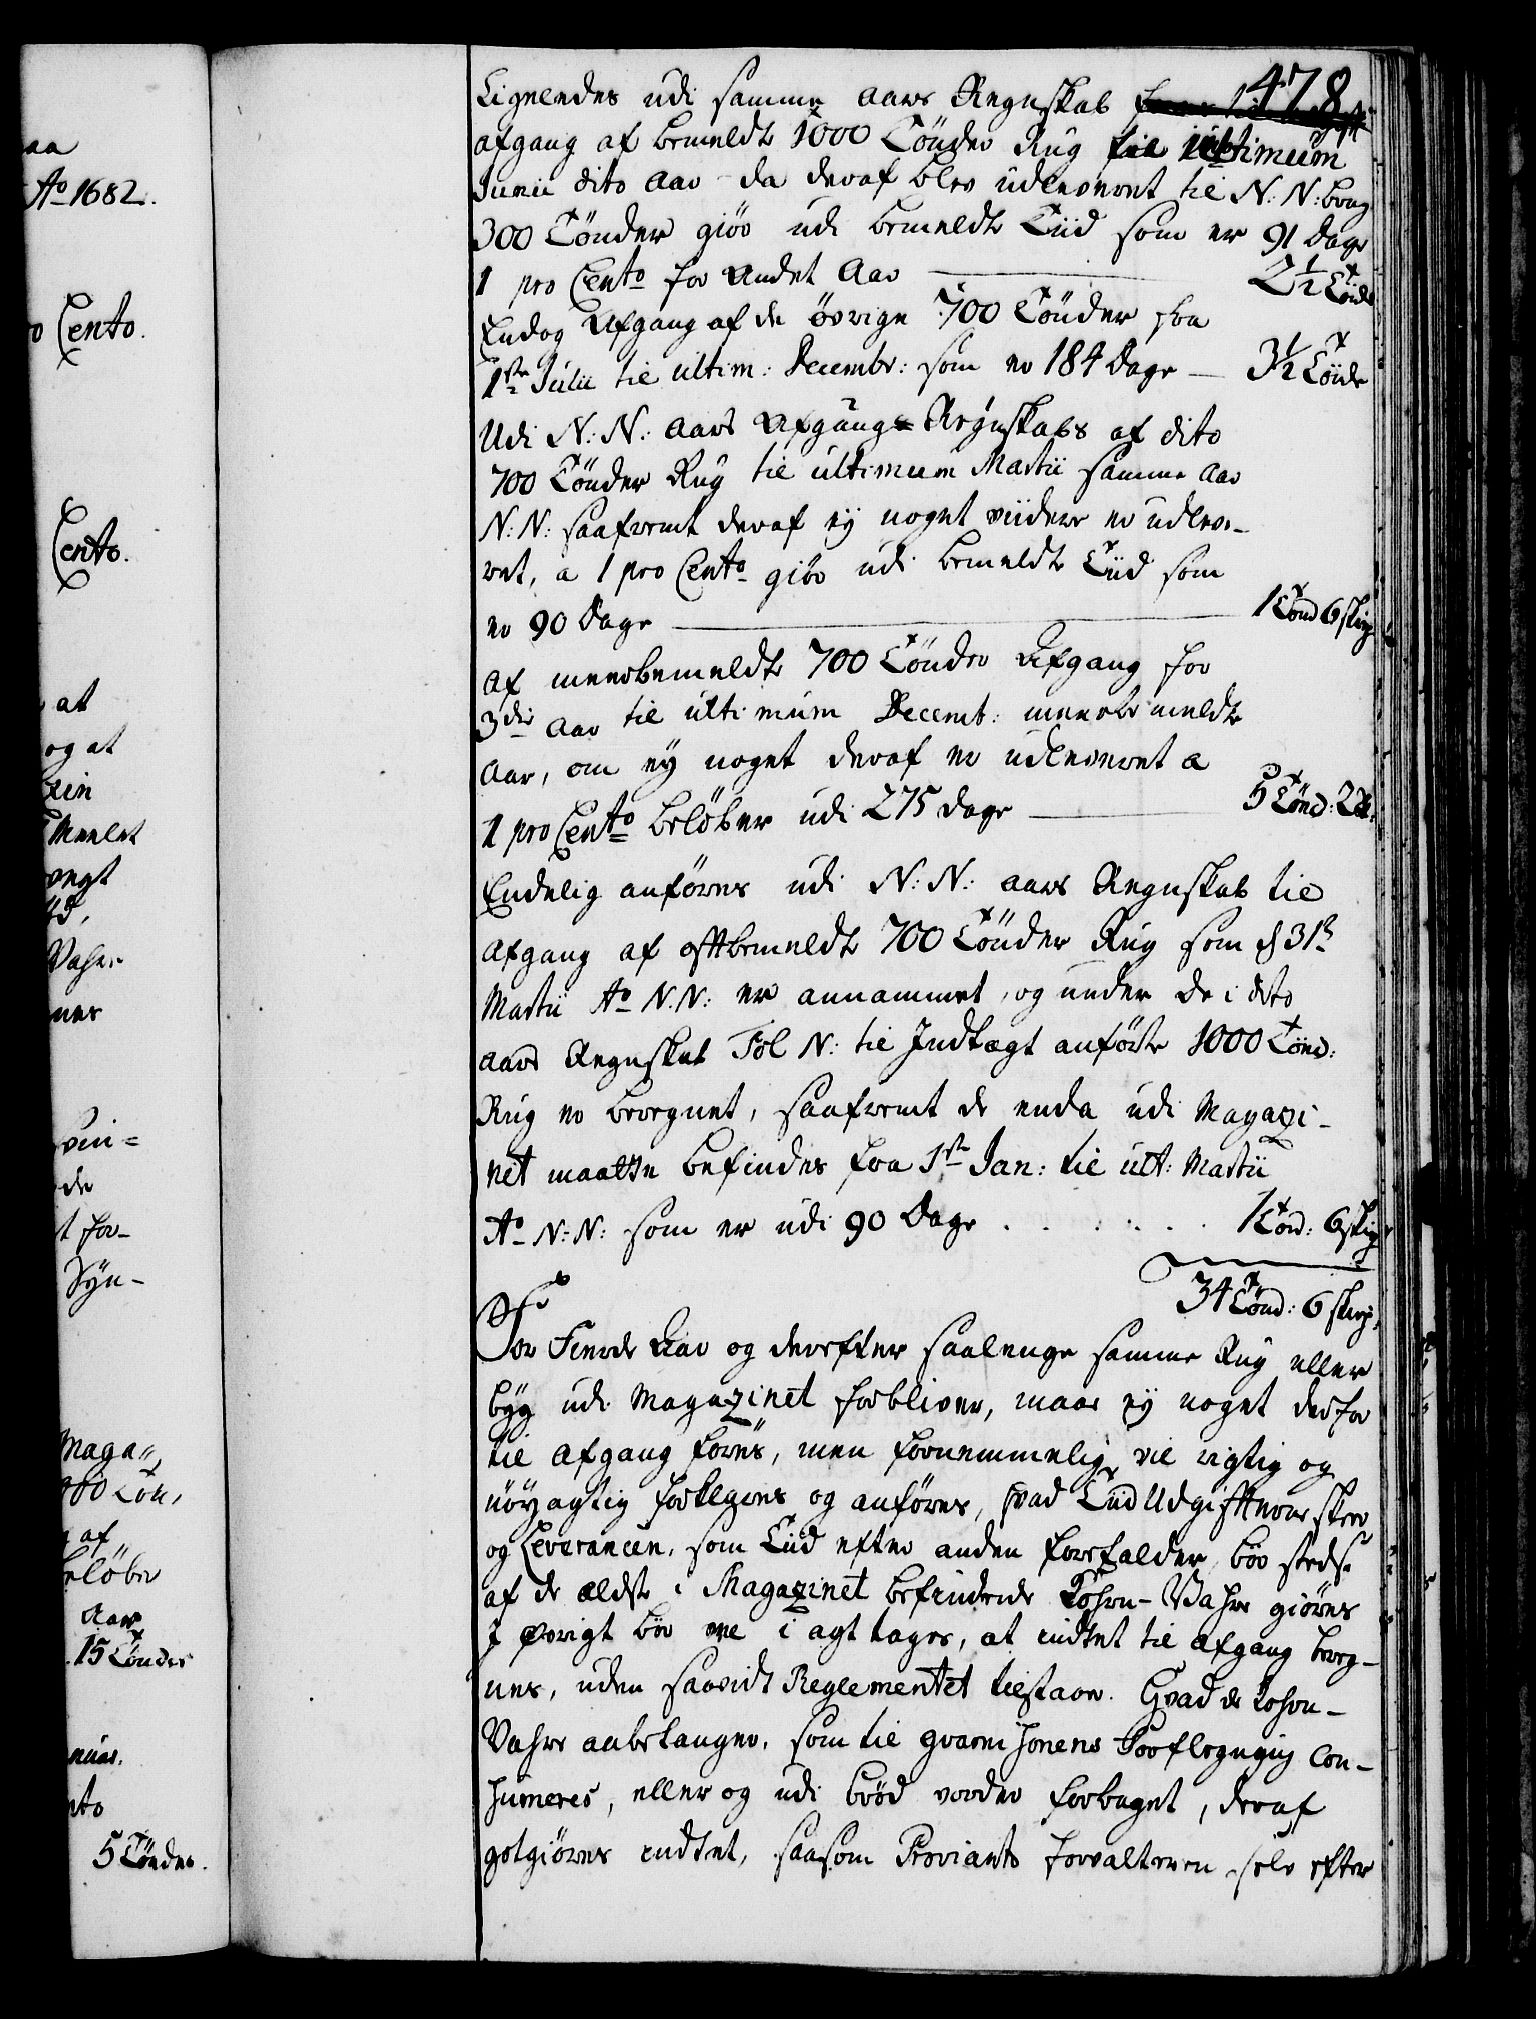 478
Ligeledes udi samme Aars Regnskab
afgang af bemeldte 1000 Tönder Rug til ultimum
Junii dito Aar da deraf blev udleveret til N: N: brug
300 Tönder giör udi bemeldte Tiid som er 91 Dage
1 pro Cento for Andet Aar 2½ Tönde
Endog Afgang af de övrige 700 Tönder fra
1ste Julii til ultim: Decembr: som er 184 Dage 3½ Tönde
Udi N: N: Aars Afgangs Regnskabs af dito
700 Tönder Rug til ultimum Martii samme Aar
N: N: saafremt deraf ey noget viidere er udleve-
ret, a 1 pro Cento giör udi bemeldte Tiid som
er 90 Dage 1 Tönd 6 skip
Af meerbemeldte 700 Tönder Afgang for
3die Aar til ultimum Decemb: meerbemeldte
Aar, om ey noget deraf er udleveret a
1 pro Cento beløber udi 275 Dage 5 Tönd: 2
Endelig anføres udi N: N: Aars Regnskab til
Afgang af oftbemeldte 700 Tönder Rug som d 31te
Martii Ao N. N: er annammet, og under de i dito
Aars Regnskab Fol N: til Indtægt anførte 1000 Tönd:
Rug er beregnet, saafremt de enda udi Magazi-
net maatte befindes fra 1ste Jan: til ult: Martii
Ao N: N: som er udi 90 Dage . . . . . . 1 Tönd: 6 skip
34 Tönd: 6 skip,
For Fierde Aar og derefter saalenge samme Rug eller
byg udi Magazinet forbliver, maae ey noget derfor
til afgang føres, men fornemmelig vil rigtig og
nöyagtig forklares og anføres, hvad Tiid Udgifterne skeer
og Leverancen, som Tiid efter anden forefalder, bör steds
af de ældste i Magazinet befindende Kohrn-Vahre giöres
I øvrigt bör vel i agt tages, at indtet til afgang bereg-
nes, uden saavidt Reglementet tilstaaer. Hvad de Kohrn-
Vahre anbelanger, som til guarnisonens Forflegning con-
sumeres, eller og udi brød vorder forbaget, deraf
gotgiöres indtet, saasom Proviants forvalteren selv efter
aa
Ao 1682.
o Cento.
Cento.
at
og at
Meelet
Vahre
nes
de
t for-
Syn-
Maga-
af
beløber
Aar
15 Tönder
nto
5 Tönder.